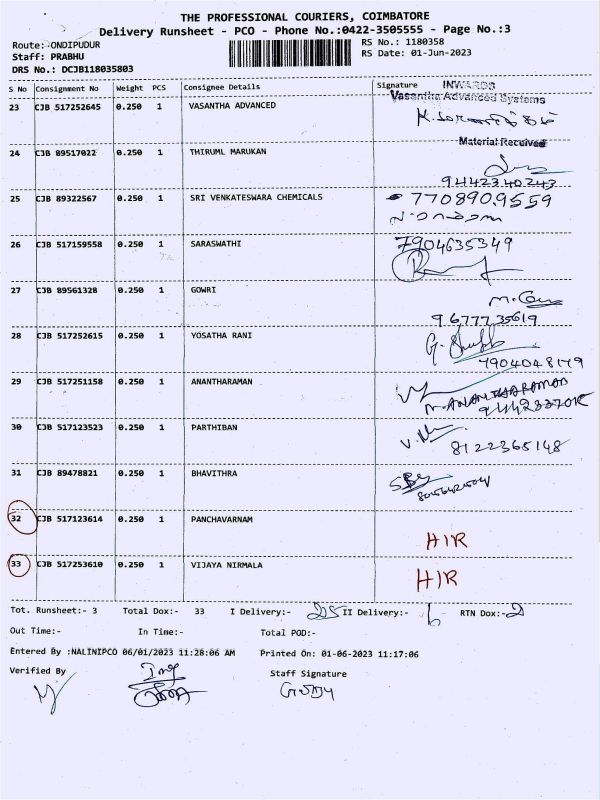 THE PROFESSIONAL COURIERS, COIMBATORE
Delivery Runsheet - PCO - Phone No.:0422-3505555 - Page No.:3
Route:-ONDIPUDUR
RS No.: 1180358
Staff: PRABHU
RS Date: 01-Jun-2023
DRS No.: DCJB118035803
S No Consignment No Weight PCS Consignee Details Signature
INWARDS
Vasantha Advanced Systems
23 CJB 517252645 0.250 1 VASANTHA ADVANCED
Material Received
24 CJB 89517022 0.250 1 THIRUML MARUKAN
9442340243
25 CJB 89322567 0.250 1 SRI VENKATESWARA CHEMICALS 7708909559
26 CJB 517159558 0.250 1 SARASWATHI 7904635349
27 CJB 89561328 0.250 1 GOWRI
9677735619
28 CJB 517252615 0.250 1 YOSATHA RANI
7904048179
29 CJB 517251158 0.250 1 ANANTHARAMAN
30 CJB 517123523 0.250 1 PARTHIBAN
8122365148
31 CJB 89478821 0.250 1 BHAVITHRA
32 CJB 517123614 0.250 1 PANCHAVARNAM
HIR
33 CJB 517253610 0.250 1 VIJAYA NIRMALA
HIR
Tot. Runsheet:- 3 Total Dox:- 33 I Delivery:- 25 II Delivery:- 6 RTN Dox:- 2
Out Time:- In Time:- Total POD:-
Entered By :NALINIPCO 06/01/2023 11:28:06 AM Printed On: 01-06-2023 11:17:06
Verified By Staff Signature